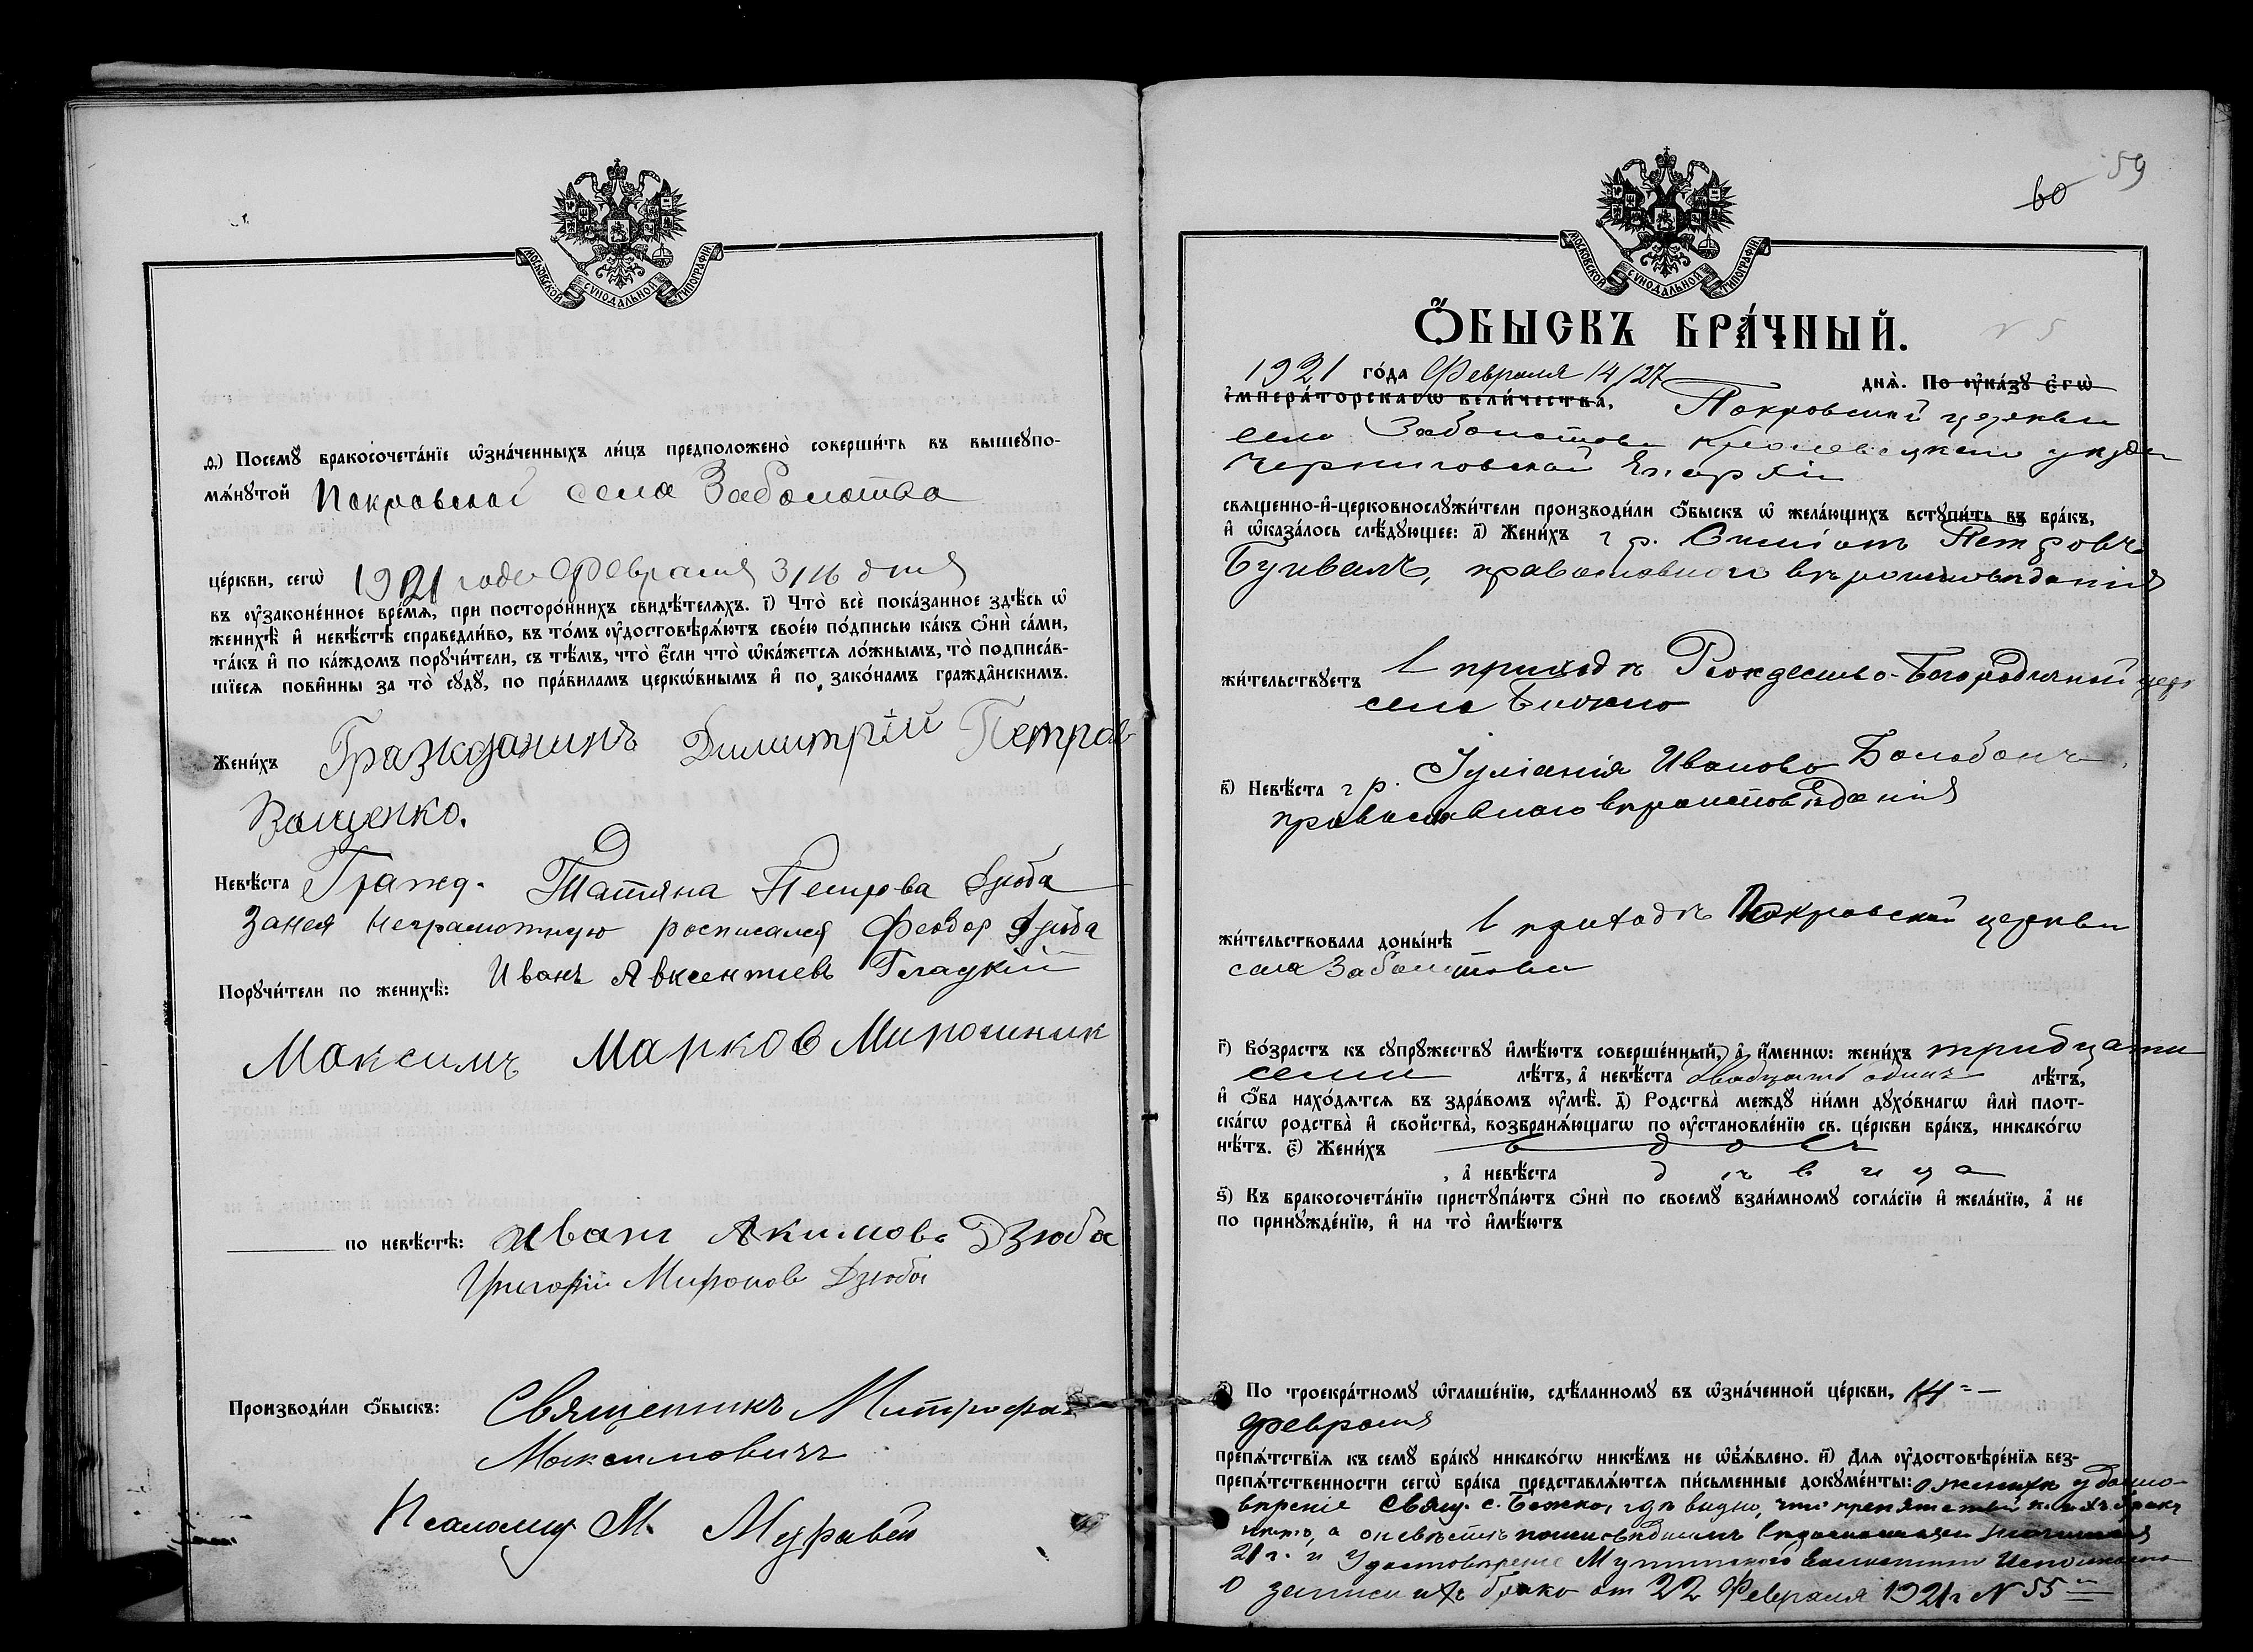 МОСКОВСКОЙ СѴНОДАЛЬНОЙ ТИПОГРАФІИ
д҃.) Посемꙋ̀ бракосочета́нїе ѡ҆зна́ченныхъ ли́цъ предположено̀ соверши́ть въ вышеꙋпо-
мѧ́нꙋтой Покровской села Заболотова
це́ркви, сегѡ̀ 1921 года Февраля 3/16 дня
въ ᲂу҆законе́нное вре́мѧ, при посторо́ннихъ свидѣ́телѧхъ. і҃) Что̀ всѐ пока́занное здѣ́сь ѡ҆
женихѣ̀ и҆ невѣ́стѣ справедли́во, въ то́мъ ᲂу҆достовѣрѧ́ютъ свое́ю по́дписью ка́къ ѻ҆нѝ са́ми,
та́къ и҆ по ка́ждомъ порꙋчи́тели, съ тѣ́мъ, что̀ є҆́сли что̀ ѡ҆ка́жетсѧ ло́жнымъ, то̀ подписа́в-
шїесѧ пови́нны за то̀ сꙋдꙋ̀, по пра́виламъ церкѡ́внымъ и҆ по зако́намъ гражда́нскимъ.
Жени́хъ Гражданинъ Димитрій Петров
Ващенко.
Невѣ́ста Гражд. Татяна Петрова Дзюба
За нея неграмотную росписался Феодор Дзюба
Порꙋчи́тели по женихѣ̀: Иванъ Авксентиевъ Гладкій
Максимъ Марков Мирошник
по невѣ́стѣ: Иван Акимовъ Дзюба
Григорій Миронов Дзюба
Производи́ли ѻ҆́быскъ: Священникъ Митрофан
Максимовичъ
Псаломщ М. Муравей
59
60
МОСКОВСКОЙ СѴНОДАЛЬНОЙ ТИПОГРАФІИ
Ѻ҆́БЫСКЪ БРА́ЧНЫЙ.
N 5
1921 го́да Февраля 14/27 днѧ̀. По ᲂу҆ка́зꙋ є҆гѡ̀
і҆мпера́торскагѡ вели́чества, Покровской церкви
села Заболотова Кролевецкаго уѣзда
Черниговской Епархіи
свѧщенно-и҆-церковнослꙋжи́тели производи́ли ѻ҆́быскъ ѡ҆ жела́ющихъ встꙋпи́ть въ бра́къ,
и҆ ѡ҆каза́лось слѣ́дꙋющее: а҃) Жени́хъ гр. Петровъ
православного вѣроисповѣданія
жи́тельствꙋетъ в приходѣ Рождество-Богородичной церк
села
в҃) Невѣ́ста гр. Іуліанія Иванова
православного вѣроисповѣданія
жи́тельствовала доны́нѣ в приходѣ Покровской церкви
села Заболотова
г҃) Во́зрастъ къ сꙋпрꙋ́жествꙋ и҆мѣ́ютъ соверше́нный, а҆ и҆́меннѡ: жени́хъ тридцати
семи лѣ́тъ, а҆ невѣ́ста двадцать одинъ лѣ́тъ,
и҆ ѻ҆́ба нахо́дѧтсѧ въ здра́вомъ ᲂу҆мѣ̀. д҃) Родства̀ междꙋ̀ ни́ми дꙋхо́внагѡ и҆лѝ плот-
ска́гѡ родства̀ и҆ свойства̀, возбранѧ́ющагѡ по ᲂу҆становле́нїю св. це́ркви бра́къ, никако́гѡ
нѣ́тъ. є҃) Жени́хъ вдовъ
, а҆ невѣ́ста дѣвица
ѕ҃) Къ бракосочета́нїю пристꙋпа́ютъ ѻ҆нѝ по своемꙋ̀ взаи́мномꙋ согла́сїю и҆ жела́нїю, а҆ не
по принꙋжде́нїю, и҆ на то̀ и҆мѣ́ютъ
з҃) По троекра́тномꙋ ѡ҆глаше́нїю, сдѣ́ланномꙋ въ ѡ҆зна́ченной це́ркви, 14
февраля
препѧ́тствїѧ къ семꙋ̀ бра́кꙋ никако́гѡ никѣ́мъ не ѡ҆б̾ѧ́влено. и҃) Для ᲂу҆достовѣре́нїѧ без-
препѧ́тственности сегѡ̀ бра́ка представлѧ́ютсѧ пи́сьменные докꙋме́нты: о женихѣ удосто-
вѣреніе Свящ. с. гдѣ видно, что препятствій къ ихъ браку
нѣтъ, а о невѣстѣ
21 г. и Удостовѣреніе
о записи ихъ брака от 22 Февраля 1921 г N 55